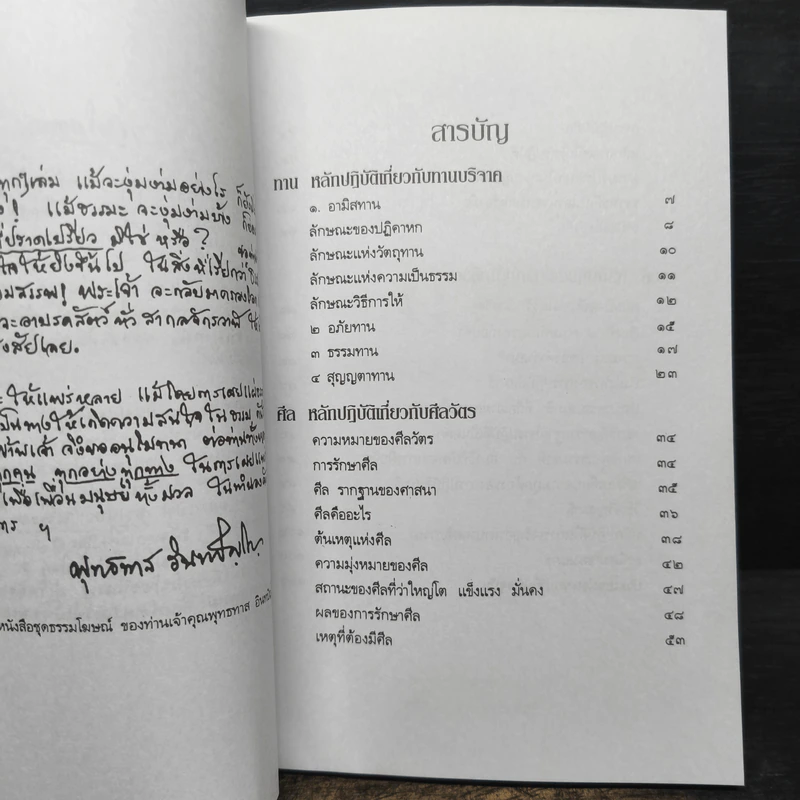 ทุกๆเล่ม แม้จะงุ่มง่ามอย่างไร ก็ยัง
! แม้ธรรมะ จะงุ่มง่ามบ้าง ก็
ปราดเปรียว มิใช่ หรือ?
ให้ยิ่งขึ้นไป ในสิ่งที่เรียกว่า
! พระเจ้า จะกลับมาครองโลก
สัตว์ ทั่ว สากลจักรวาฬ
สงสัยเลย.
ให้แพร่หลาย แม้โดยการเผยแผ่
เป็นทางให้เกิดความสนใจในธรรม
ข้าพเจ้า จึงขออนุโมทนา ต่อท่านทั้ง
ทุกคน ทุกอย่างทุกทาง ในการเผยแผ่
เพื่อเพื่อนมนุษย์ ทั้งมวล ในทำนอง
ฯ
พุทธทาส อินทปัญโญ
หนังสือชุดธรรมโฆษณ์ ของท่านเจ้าคุณพุทธทาส
สารบัญ
ทาน หลักปฏิบัติเกี่ยวกับทานบริจาค
๑. อามิสทาน ๗
ลักษณะของปฏิคาหก ๘
ลักษณะแห่งวัตถุทาน ๑๐
ลักษณะแห่งความเป็นธรรม ๑๑
ลักษณะวิธีการให้ ๑๒
๒ อภัยทาน ๑๕
๓ ธรรมทาน ๑๗
๔ สุญญตาทาน ๒๓
ศีล หลักปฏิบัติเกี่ยวกับศีลวัตร
ความหมายของศีลวัตร ๓๔
การรักษาศีล ๓๔
ศีล รากฐานของศาสนา ๓๕
ศีลคืออะไร ๓๖
ต้นเหตุแห่งศีล ๓๘
ความมุ่งหมายของศีล ๔๒
สถานะของศีลที่ว่าใหญ่โต แข็งแรง มั่นคง ๔๗
ผลของการรักษาศีล ๔๘
เหตุที่ต้องมีศีล ๕๓